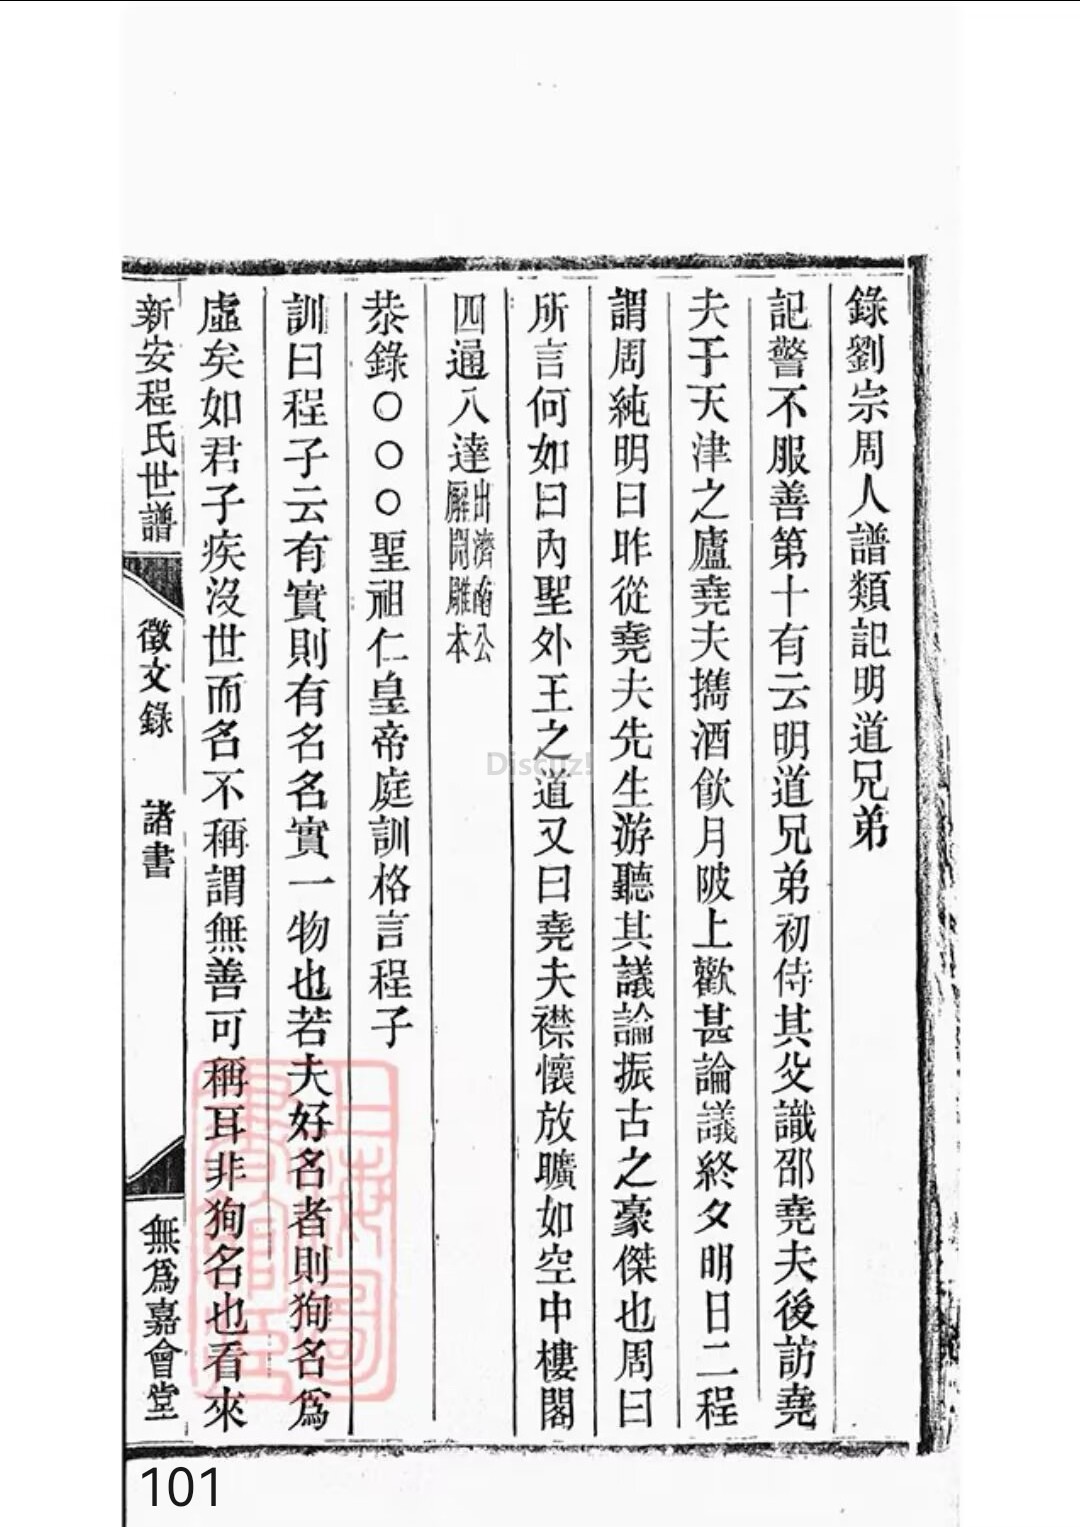 錄劉宗周人譜類記明道兄弟
記警不服善第十有云明道兄弟初侍其父識邵堯夫後訪堯
夫于天津之廬堯夫擕酒飲月陂上歡甚論議終夕明日二程
謂周純明曰昨從堯夫先生游聽其議論振古之豪傑也周曰
所言何如曰內聖外王之道又曰堯夫襟懷放曠如空中樓閣
四通八達出濟南公廨開雕本
恭錄○○○聖祖仁皇帝庭訓格言程子
訓曰程子云有實則有名名實一物也若夫好名者則狥名爲
虛矣如君子疾沒世而名不稱謂無善可稱耳非狥名也看來
新安程氏世譜 徵文錄 諸書 無爲嘉會堂
上海圖書館藏
Discuz!
101